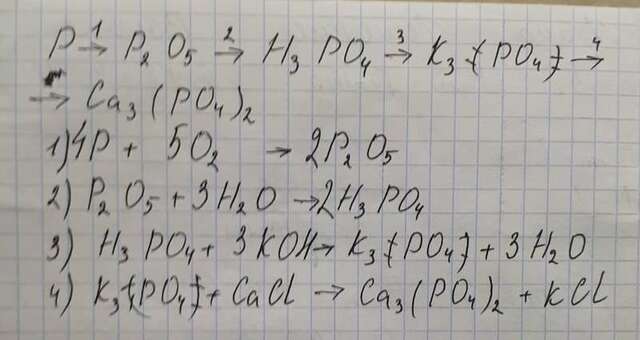 P →¹ P₂O₅ →² H₃PO₄ →³ K₃(PO₄) →⁴
→ Ca₃(PO₄)₂
1) 4P + 5O₂ → 2P₂O₅
2) P₂O₅ + 3H₂O → 2H₃PO₄
3) H₃PO₄ + 3KOH → K₃(PO₄) + 3H₂O
4) K₃(PO₄) + CaCl → Ca₃(PO₄)₂ + KCl